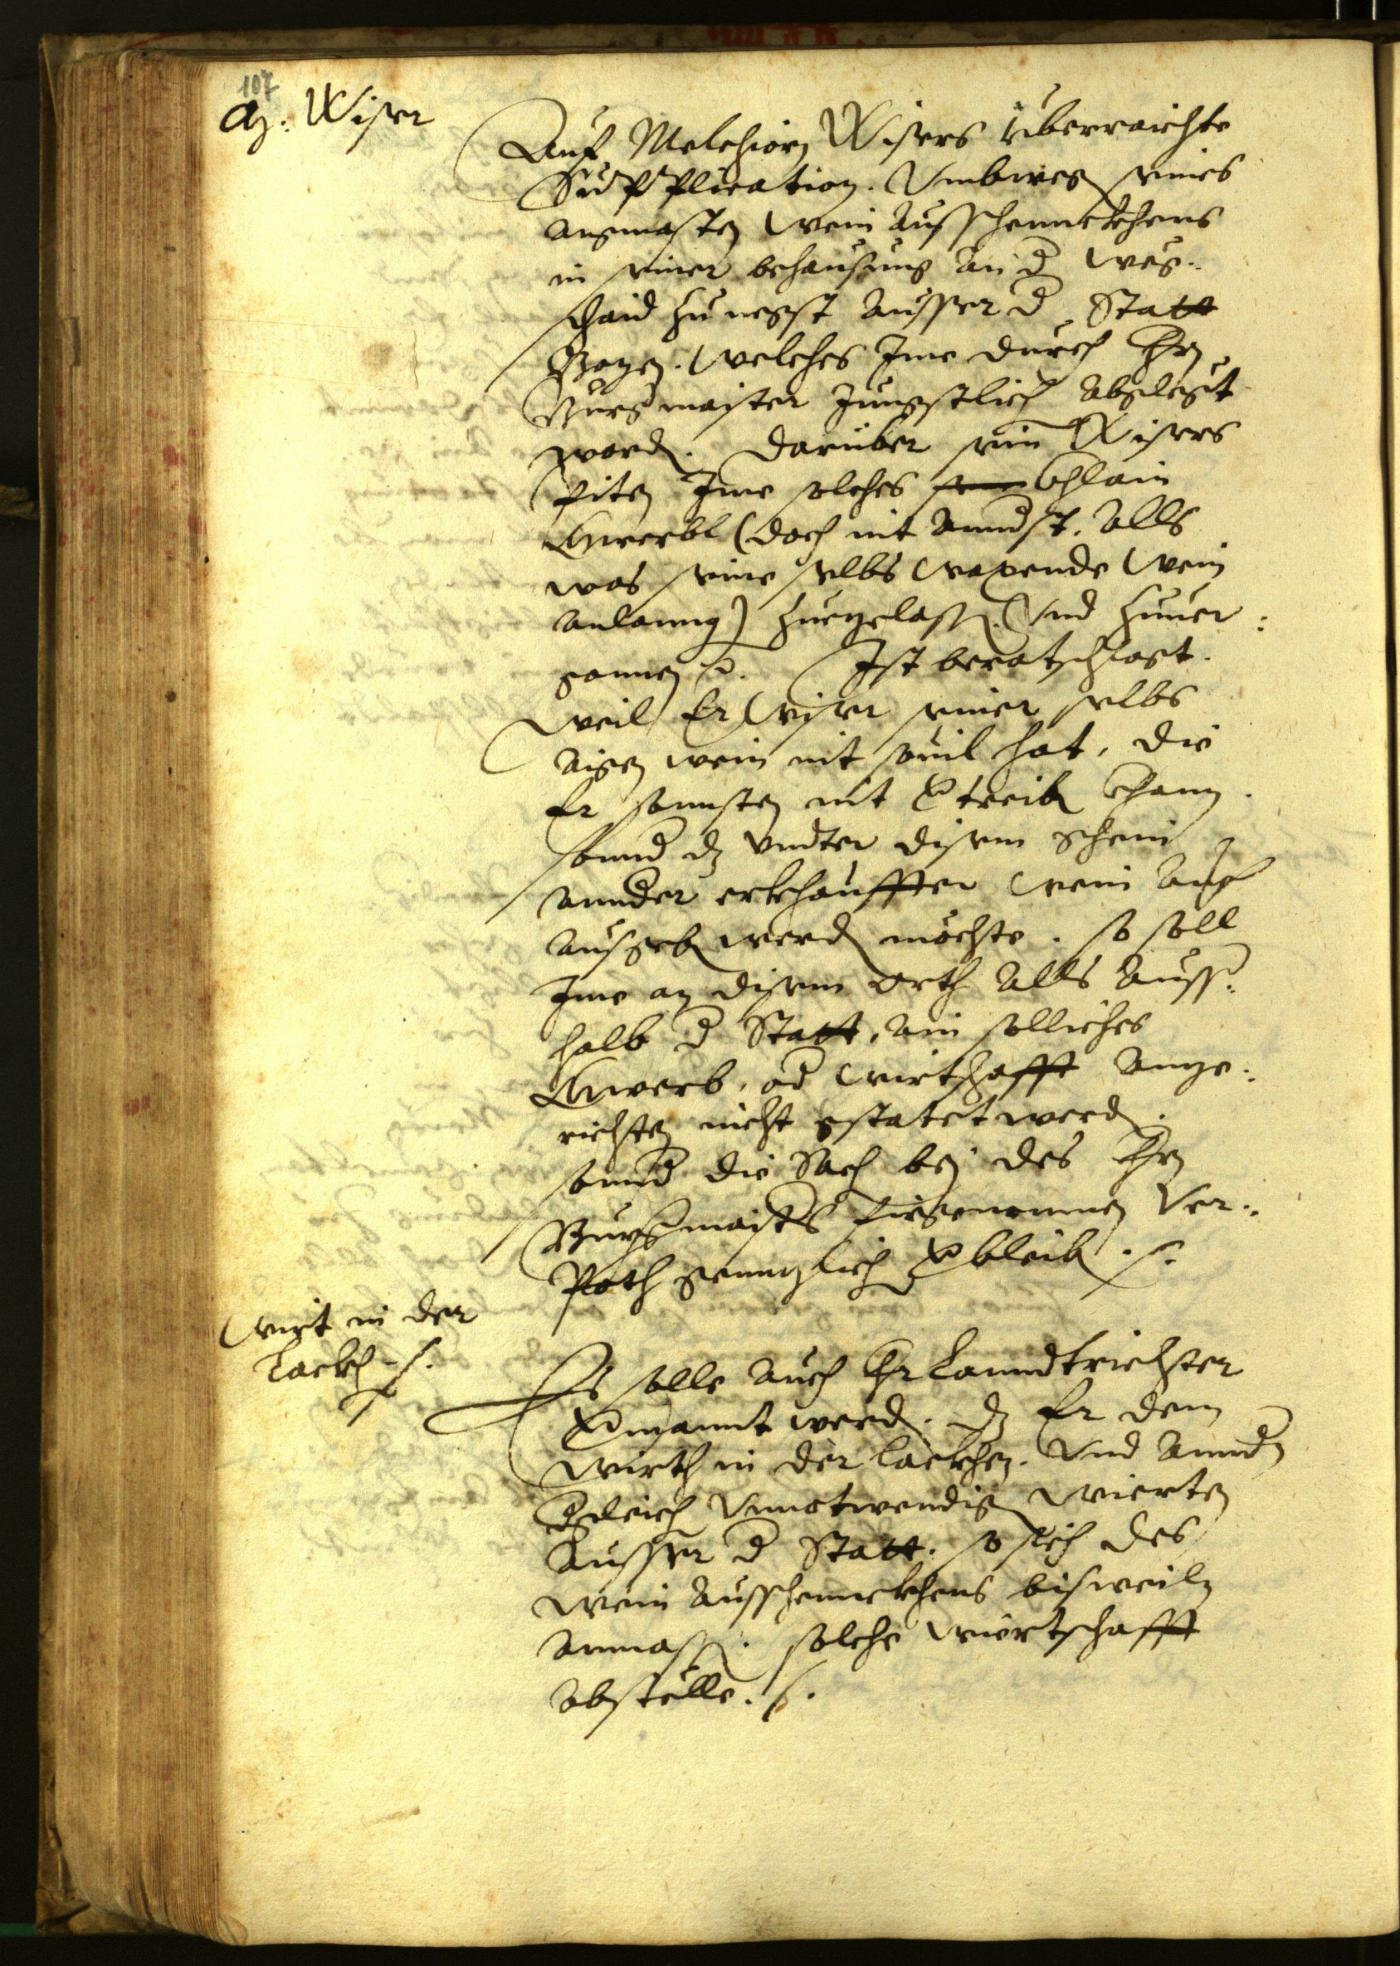 107
M: Wiser
Auf Melchiorn Wisers überraichte
Supplication. Umbweg seines
angemasten Wein ausschennckhens
in seiner behausung an d Weg:
schaid zu negst ausser d Statt
Bozen. Welches Ime durch Hrn
Burgmaister Jungstlich abglegt
word. Darüber sein Wisers
Piten Ime solches khlain
Gwerbl (doch nit annderst, alls
was seine selbs waxende Wein
anlanng) zuegelassn. Und zuuer:
gonnen. Ist beratschlagt.
Weil Er Wiser seiner selbs
aigen wein nit souil hat, die
Er sonnsten nit vertreiben khann.
sonnd dz unndter disem schein
annder erkhauffter Wein auch
ausgeben werden möchte. so soll
Ime an disem Orth alls auss:
halb d Statt, ain solliches
Gwerb, od Wirtschafft anze:
richten nicht gstatet werden.
sonnd die Sach bey des Hrn
Burgmaisters fürgenommen Ver:
Poth genntzlich verbleiben.
Wirt in der
Lackh
Es solle auch Hr Lanndtrichter
vermannt werden. dz Er dem
Wirth in der Lackhen. Und annd
dergleich unnotwendigen Wierten
ausser d Statt. so sich des
Wein ausschennckhens bisweiln
anmassen. solche Wiertschafft
abstelle.